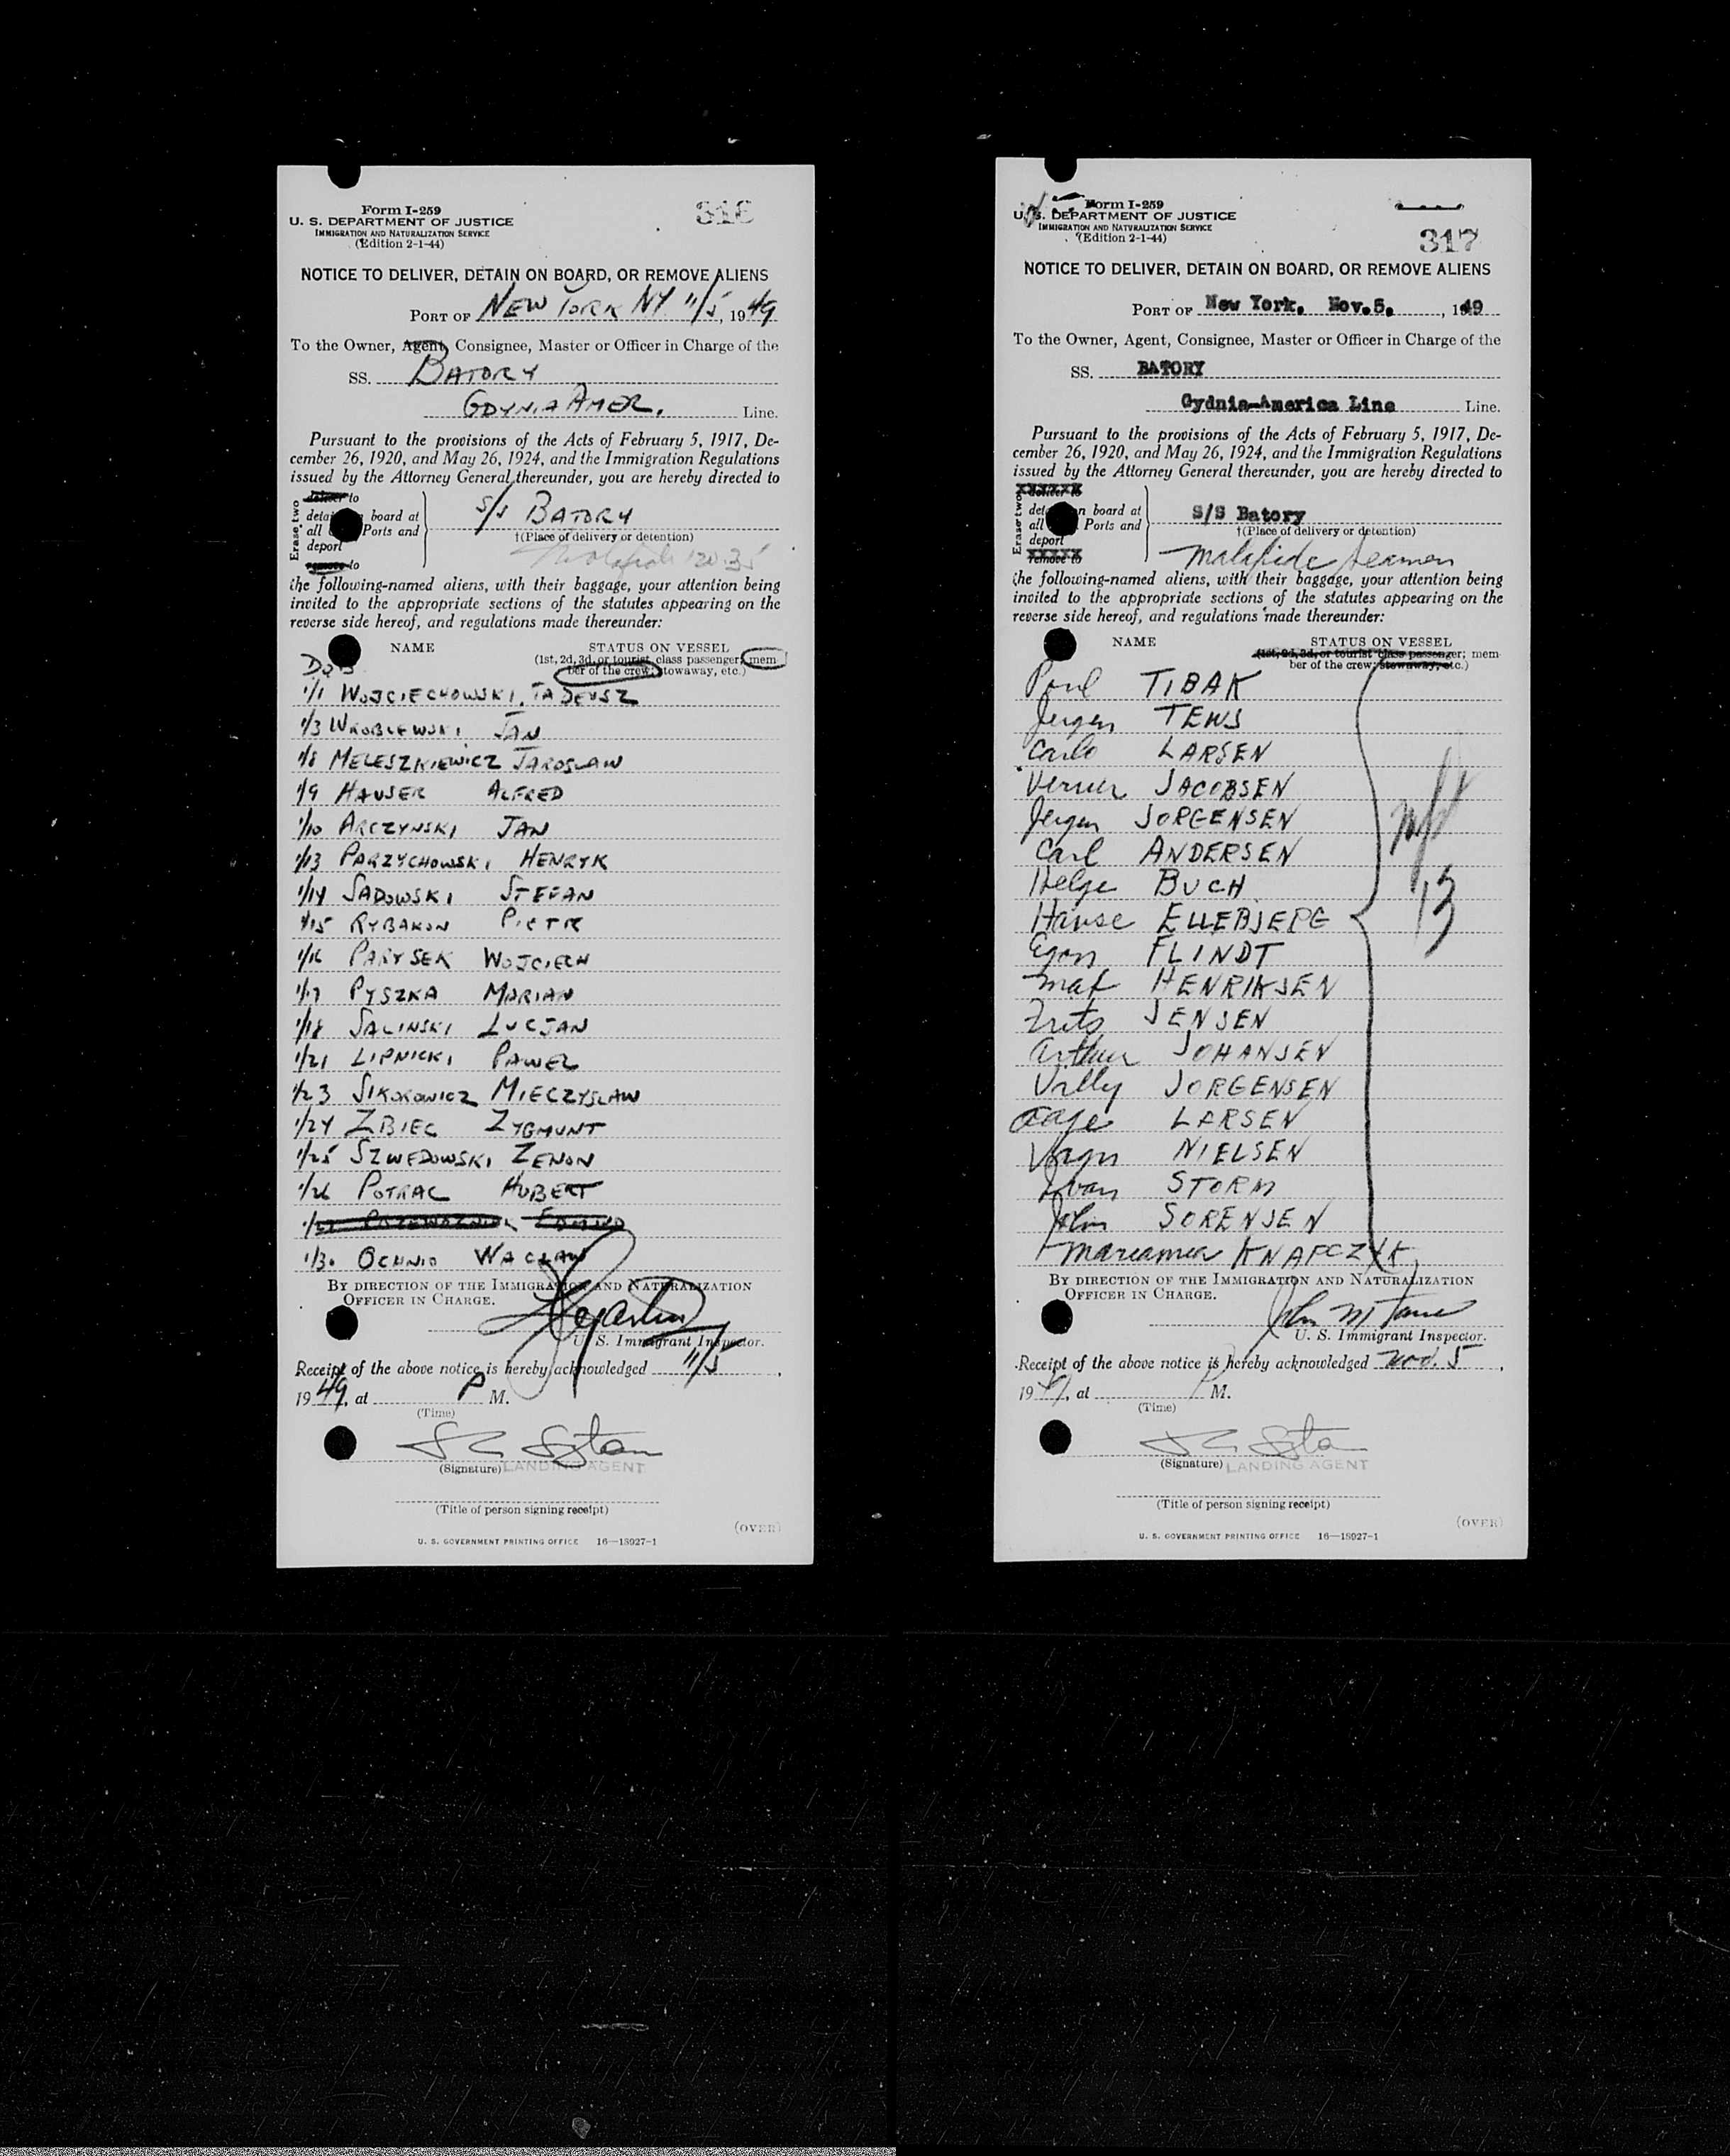 Form I-259
U. S. DEPARTMENT OF JUSTICE
IMMIGRATION AND NATURALIZATION SERVICE
(Edition 2-1-44)
316
NOTICE TO DELIVER, DETAIN ON BOARD, OR REMOVE ALIENS
PORT OF NEW YORK NY 11/5, 1949
To the Owner, Agent, Consignee, Master or Officer in Charge of the
SS. BATORY
GDYNIA AMER. Line.
Pursuant to the provisions of the Acts of February 5, 1917, De-
cember 26, 1920, and May 26, 1924, and the Immigration Regulations
issued by the Attorney General thereunder, you are hereby directed to
Erase two
deliver to
board at
all Ports and
deport
remove to
S/S BATORY
†(Place of delivery or detention)
the following-named aliens, with their baggage, your attention being
invited to the appropriate sections of the statutes appearing on the
reverse side hereof, and regulations made thereunder:
NAME STATUS ON VESSEL
(1st, 2d, 3d, or tourist class passenger; mem
ber of the crew; stowaway, etc.)
1/1 WOJCIECHOWSKI, TADEUSZ
1/3 WROBLEWSKI JAN
1/8 MELESZKIEWICZ JAROSLAW
1/9 HAUSER ALFRED
1/10 ARCZYNSKI JAN
1/13 PARZYCHOWSKI HENRYK
1/14 SADOWSKI STEFAN
1/15 RYBAKON PIOTR
1/16 PARYSEK WOJCIECH
1/17 PYSZKA MARIAN
1/18 SALINSKI LUCJAN
1/21 LIPNICKI PAWEL
1/23 SIKOROWICZ MIECZYSLAW
1/24 ZBIEC ZYGMUNT
1/25 SZWEDOWSKI ZENON
1/26 POTRAC HUBERT
1/30 OCHNIO WACLAW
BY DIRECTION OF THE IMMIGRATION AND NATURALIZATION
OFFICER IN CHARGE.
U. S. Immigrant Inspector.
Receipt of the above notice is hereby acknowledged 11/5,
1949, at P M.
(Time)
(Signature) LANDING AGENT
(Title of person signing receipt)
(OVER)
U. S. GOVERNMENT PRINTING OFFICE 16—18927-1
Form I-259
U. S. DEPARTMENT OF JUSTICE
IMMIGRATION AND NATURALIZATION SERVICE
(Edition 2-1-44)
317
NOTICE TO DELIVER, DETAIN ON BOARD, OR REMOVE ALIENS
PORT OF New York, Nov.5, 1949
To the Owner, Agent, Consignee, Master or Officer in Charge of the
SS. BATORY
Gydnia-America Line Line.
Pursuant to the provisions of the Acts of February 5, 1917, De-
cember 26, 1920, and May 26, 1924, and the Immigration Regulations
issued by the Attorney General thereunder, you are hereby directed to
Erase two
deliver to
board at
all Ports and
deport
remove to
S/S Batory
†(Place of delivery or detention)
malafide seamen
the following-named aliens, with their baggage, your attention being
invited to the appropriate sections of the statutes appearing on the
reverse side hereof, and regulations made thereunder:
NAME STATUS ON VESSEL
(1st, 2d, 3d, or tourist class passenger; mem-
ber of the crew; stowaway, etc.)
Poul TIBAK
Jergen TEWS
Carlo LARSEN
Verner JACOBSEN
Jergen JORGENSEN
Carl ANDERSEN
Helge BUCH
Hanse ELLEBJERG
Egon FLINDT
Max HENRIKSEN
Frits JENSEN
Arthur JOHANSEN
Villy JORGENSEN
Oage LARSEN
Vagn NIELSEN
Ivan STORM
John SORENSEN
KNAPCZYK
13
BY DIRECTION OF THE IMMIGRATION AND NATURALIZATION
OFFICER IN CHARGE.
U. S. Immigrant Inspector.
Receipt of the above notice is hereby acknowledged Nov. 5,
1949, at P M.
(Time)
(Signature) LANDING AGENT
(Title of person signing receipt)
(OVER)
U. S. GOVERNMENT PRINTING OFFICE 16—18927-1